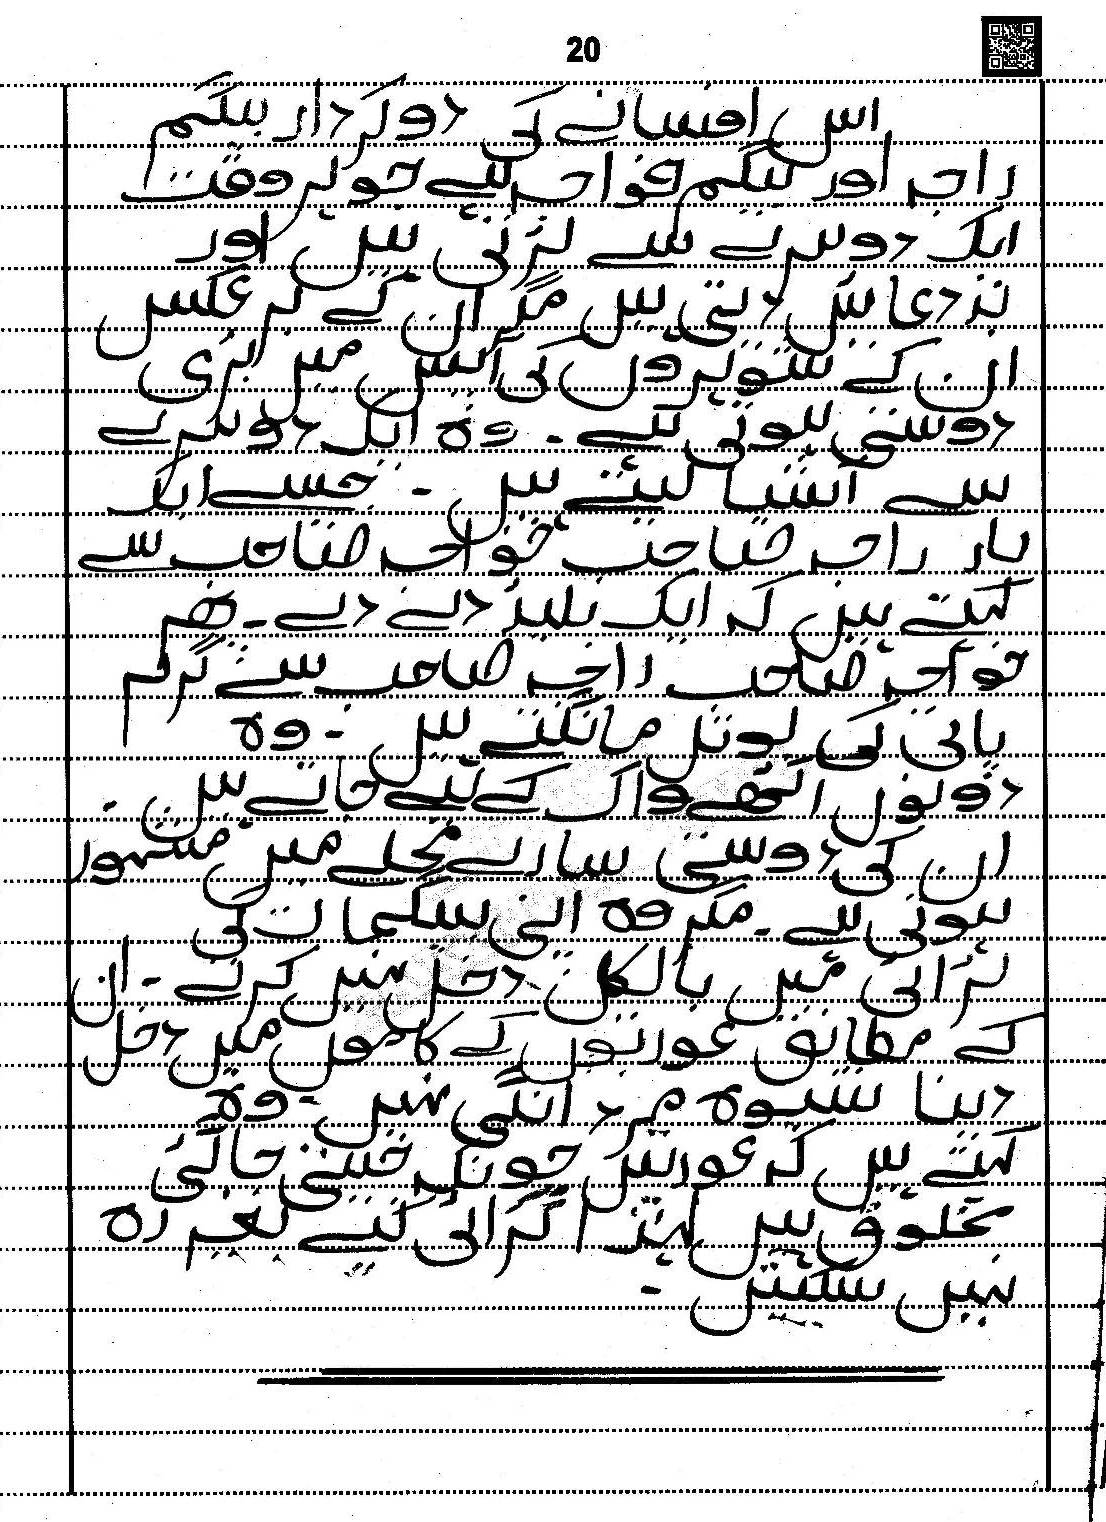 20
اس افسانے کی دو کردار بیگم
راجہ اور بیگم خواجہ ہے جو ہر وقت
ایک دوسرے سے لڑتی ہیں اور
بددعائیں دیتی ہیں مگر ان کے برعکس
ان کے شوہروں کی آپس میں بڑی
دوستی ہوتی ہے ۔ وہ ایک دوسرے
سے آشنا لیتے ہیں ۔ جیسے ایک
بار راجہ صاحب خواجہ صاحب سے
کہتے ہیں کہ ایک بلیڈ دے دے ۔ پھر
خواجہ صاحب راجہ صاحب سے گرم
پانی کی بوتل مانگتے ہیں ۔ وہ
دونوں اکٹھے واک کے لیے جاتے ہیں ۔
ان کی دوستی سارے محلے میں مشہور
ہوتی ہے ۔ مگر وہ اپنی بیگمات کی
لڑائی میں بالکل دخل نہیں کرتے ۔ ان
کے مطابق عورتوں کے کاموں میں دخل
دینا شیوہ مردانگی نہیں ۔ وہ
کہتے ہیں کہ عورتیں چونکہ جیتی جاگتی
مخلوق ہیں لہذا لڑائی کیے بغیر رہ
نہیں سکتیں ۔